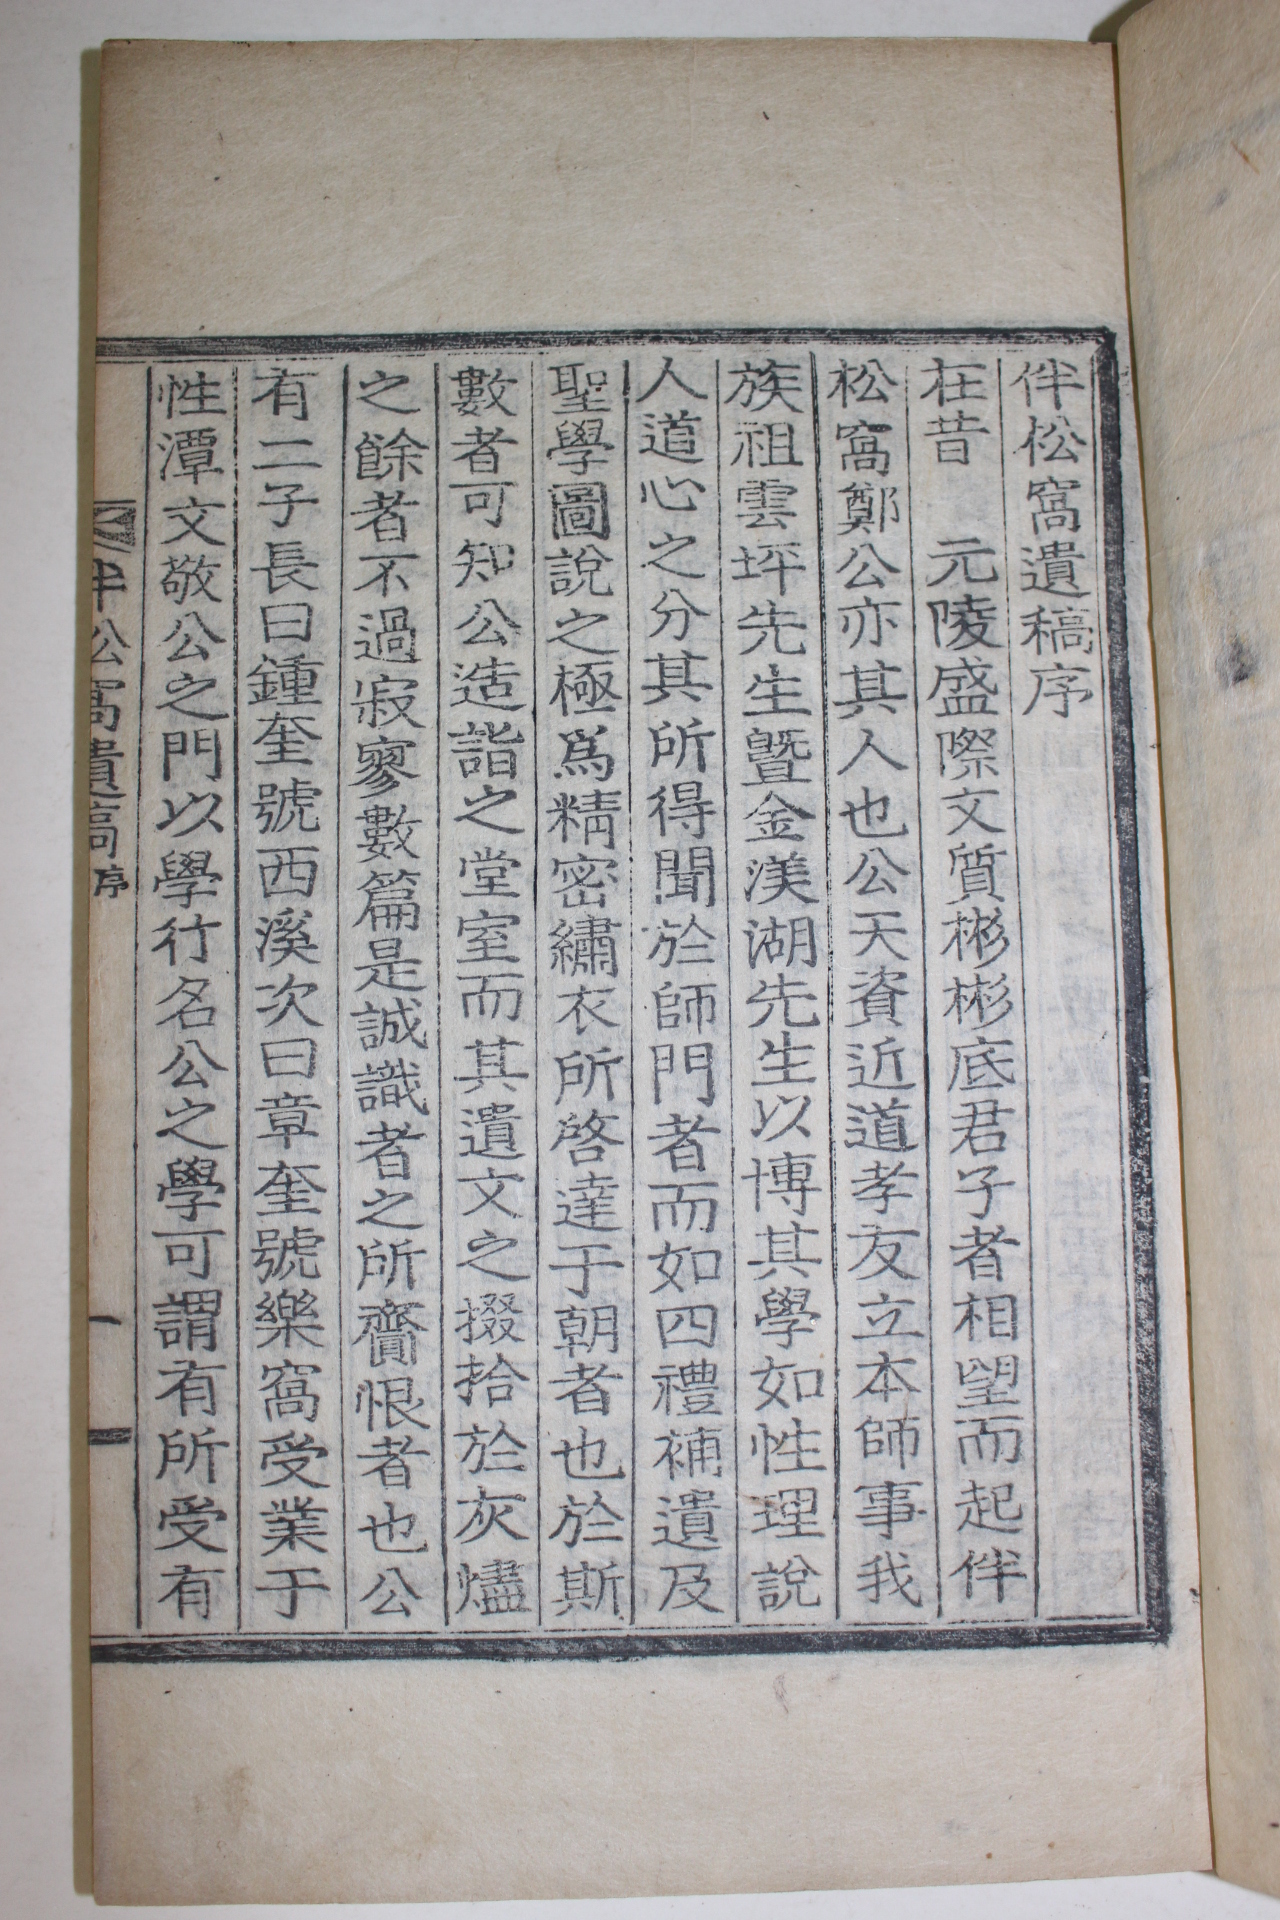 伴松窩遺稿序
在昔　元陵盛際文質彬彬底君子者相望而起伴
松窩鄭公亦其人也公天資近道孝友立本師事我
族祖雲坪先生曁金渼湖先生以博其學如性理說
人道心之分其所得聞於師門者而如四禮補遺及
聖學圖說之極爲精密繡衣所啓達于朝者也於斯
數者可知公造詣之堂室而其遺文之掇拾於灰燼
之餘者不過寂寥數篇是誠識者之所齎恨者也公
有二子長曰鍾奎號西溪次曰章奎號樂窩受業于
性潭文敬公之門以學行名公之學可謂有所受有
伴松窩遺稿 序 一